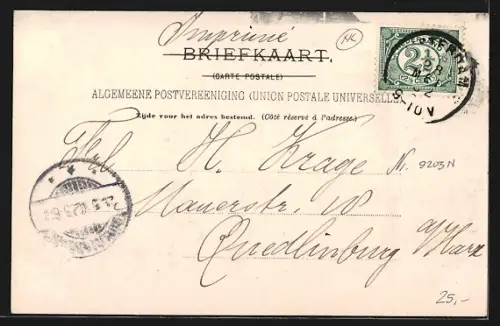 Imprimé
NL
BRIEFKAART.
(CARTE POSTALE)
ALGEMEENE POSTVEREENIGING (UNION POSTALE UNIVERSELLE)
Zijde voor het adres bestemd. (Côté réservé à l'adresse.)
2½
Frl. H. Krage
Nr. 9203N
Mauerstr. 18
Quedlinburg
a/Harz
25,-